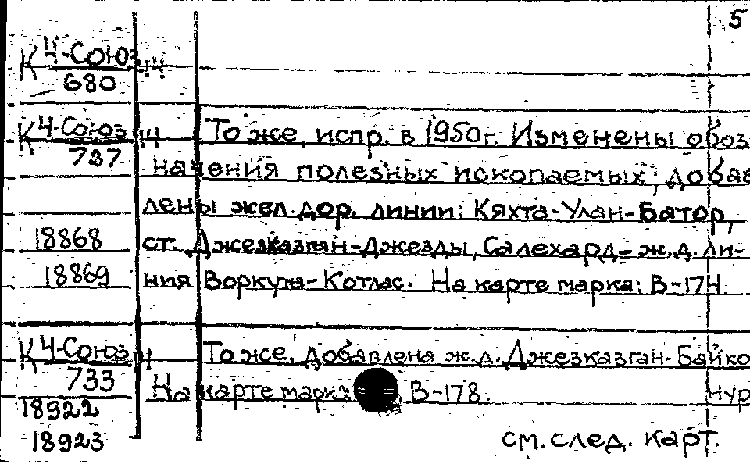 5
К 4-Союз 14
680
К 4-Союз 14 То же, испр. в 1950 г. Изменены обоз
727 начения полезных ископаемых, добав
лены жел. дор. линии: Кяхта-Улан-Батор,
18868 ст. Джезказган-Джезды, Салехард-ж.д. ли-
18869 ния Воркута-Котлас. На карте марка: В-174.
К 4-Союз То же. Добавлена ж.д. Джезказган-Байко
733 На карте марка В-178. нур
18922
18923 см. след. карт.